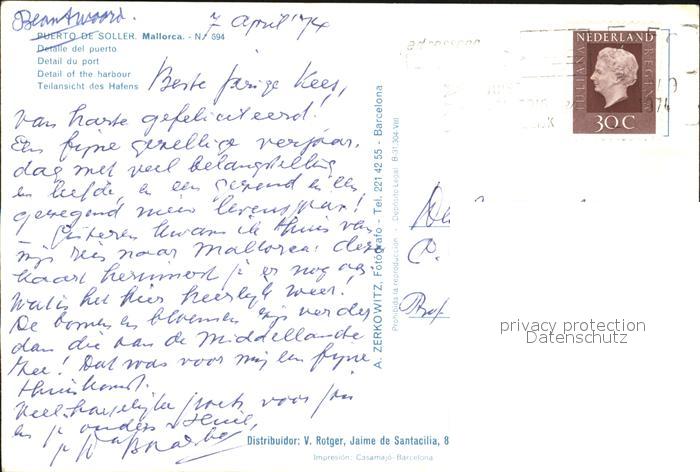 Beantwoord.
7 April '74
PUERTO DE SOLLER. Mallorca. - N.º 594
Detalle del puerto
Detail du port
Detail of the harbour
Teilansicht des Hafens
Beste jarige Kees,
van harte gefeliciteerd!
Een fijne gezellige verjaar-
dag met veel belangstelling
en liefde, en een gezond en een
gezegend nieuw levensjaar!
Gisteren kwam ik thuis van
mijn reis naar Mallorca: deze
kaart herinnert je er nog aan
Wat is het hier heerlijk weer!
De bomen en bloemen zijn verder
dan die aan de Middellandse
Zee! Dat was voor mij een fijne
thuiskomst.
Veel hartelijke groets voor jou
en je ouders
A. ZERKOWITZ, Fotógrafo - Tel. 221 42 55 - Barcelona
Prohibida la reproducción - Depósito Legal B-31.304-VIII
NEDERLAND
JULIANA REGINA
30 C
privacy protection
Datenschutz
Distribuidor: V. Rotger, Jaime de Santacilia, 8
Impresión: Casamajó-Barcelona